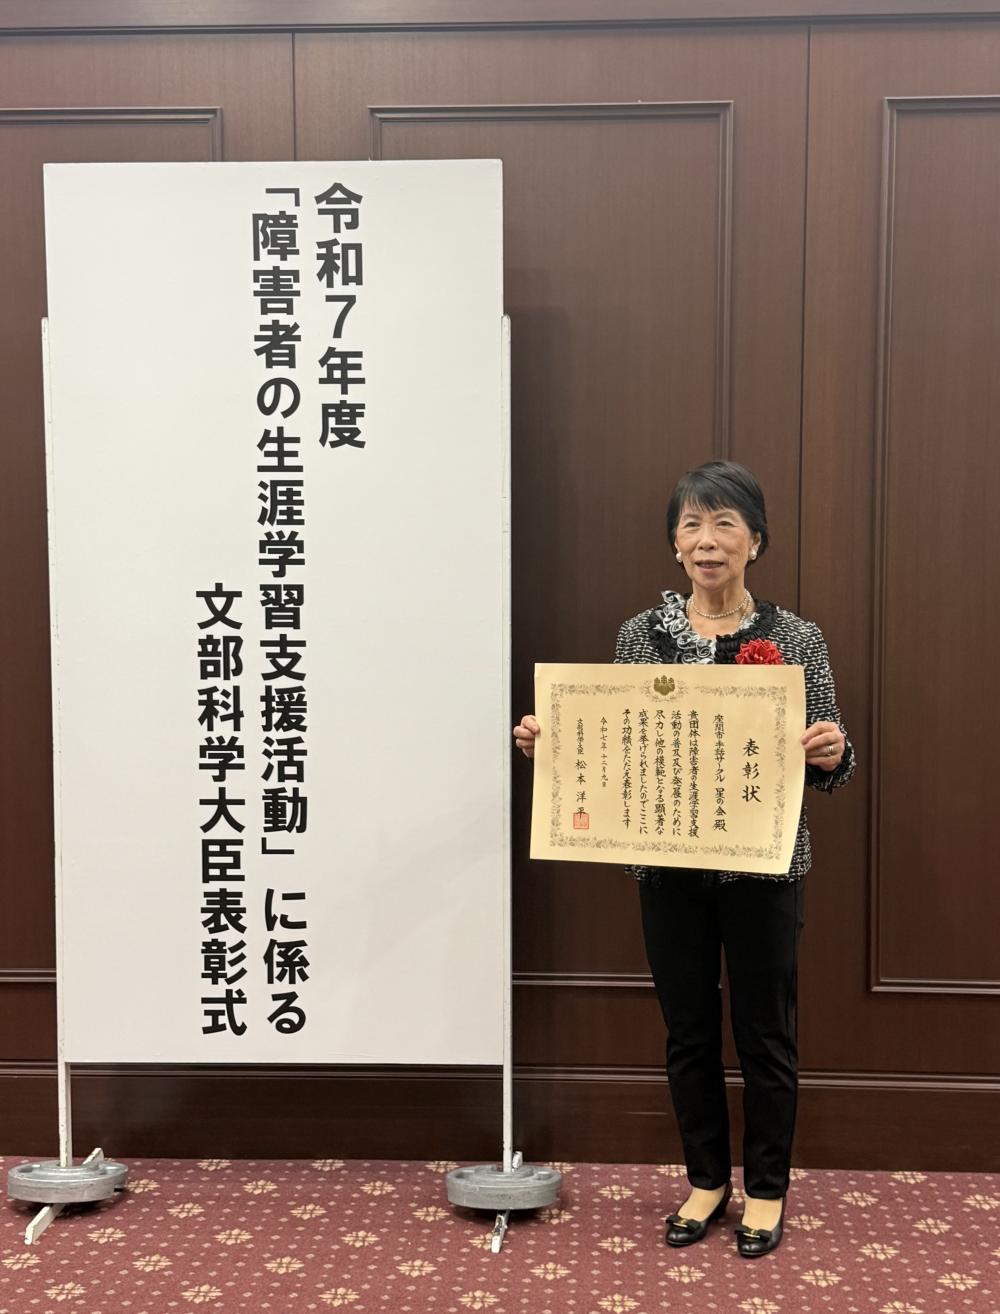 令和7年度
「障害者の生涯学習支援活動」に係る
文部科学大臣表彰式
表彰状
座間市手話サークル 星の会 殿
貴団体は障害者の生涯学習支援
活動の普及及び発展のために
尽力し他の模範となる顕著な
成果を挙げられましたのでここに
その功績をたたえ表彰します
令和七年十二月九日
文部科学大臣 松本洋平